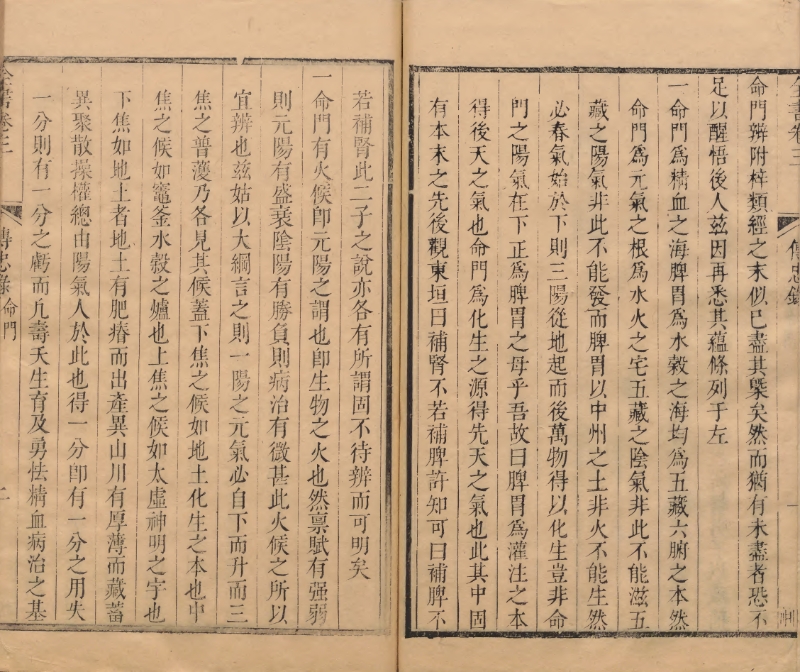 全書卷三
傳忠錄
一
命門辨附梓類經之末似已盡其槩矣然而猶有未盡者恐不
足以醒悟後人茲因再悉其蘊條列于左
一命門為精血之海脾胃為水穀之海均為五藏六腑之本然
命門為元氣之根為水火之宅五藏之陰氣非此不能滋五
藏之陽氣非此不能發而脾胃以中州之土非火不能生然
必春氣始於下則三陽從地起而後萬物得以化生豈非命
門之陽氣在下正為脾胃之母乎吾故曰脾胃為灌注之本
得後天之氣也命門為化生之源得先天之氣也此其中固
有本末之先後觀東垣曰補腎不若補脾許知可曰補脾不
若補腎此二子之說亦各有所謂固不待辨而可明矣
一命門有火候卽元陽之謂也卽生物之火也然禀賦有强弱
則元陽有盛衰陰陽有勝負則病治有微甚此火候之所以
宜辨也茲姑以大綱言之則一陽之元氣必自下而升而三
焦之普濩乃各見其候蓋下焦之候如地土化生之本也中
焦之候如竈釜水穀之爐也上焦之候如太虛神明之宇也
下焦如地土者地土有肥瘠而出產異山川有厚薄而藏蓄
異聚散操權總由陽氣人於此也得一分卽有一分之用失
一分則有一分之虧而凢壽夭生育及勇怯精血病治之基
全書卷三
傳忠錄 命門
二